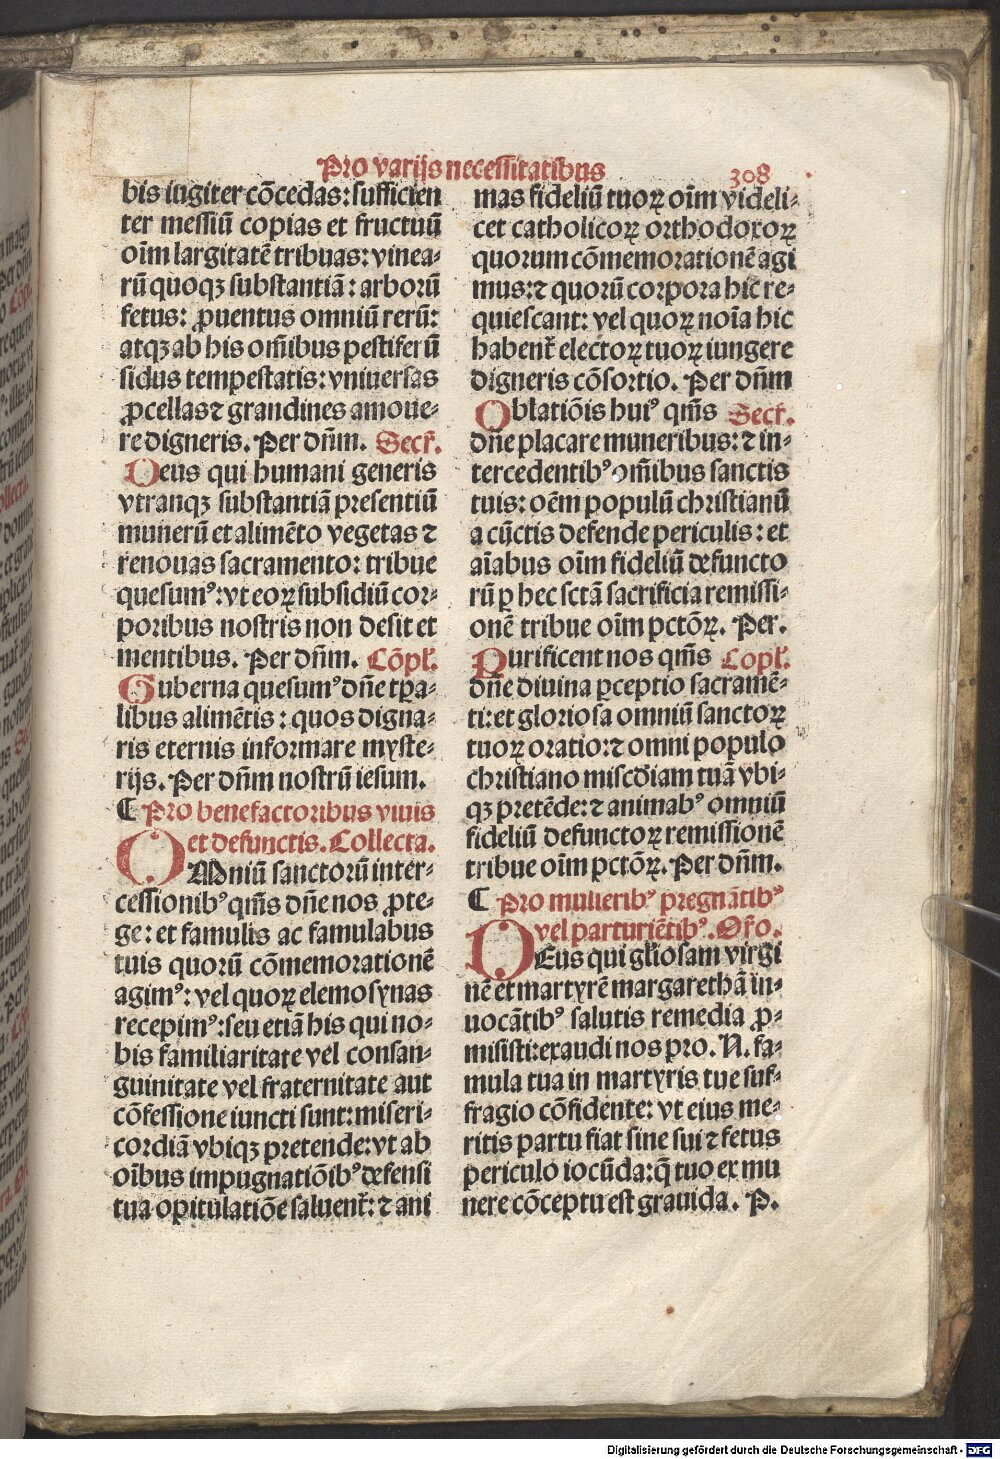 Pro varijs necessitatibus 308
bis iugiter cōcedas: sufficien
ter messiū copias et fructuū
oīm largitatē tribuas: vinea⸗
rū quoqꝫ substantiā: arborū
fetus: ꝓuentus omniū rerū:
atqꝫ ab his om̄ibus pestiferū
sidus tempestatis: vniuersas
ꝓcellas ⁊ grandines amoue⸗
re digneris. Per dn̄m. Secr̄.
Deus qui humani generis
vtranqꝫ substantiā presentiū
munerū et alimēto vegetas ⁊
renouas sacramento: tribue
quesumꝰ: vt eoꝝ subsidiū cor⸗
poribus nostris non desit et
mentibus. Per dn̄m. Cōpl̄.
Guberna quesumꝰ dn̄e tꝑa⸗
libus alimētis: quos digna⸗
ris eternis informare myste⸗
rijs. Per dn̄m nostrū iesum.
¶ Pro benefactoribus viuis
et defunctis. Collecta.
OMniū sanctorū inter⸗
cessionibꝰ qm̄s dn̄e nos ꝓte⸗
ge: et famulis ac famulabus
tuis quorū cōmemorationē
agimꝰ: vel quoꝝ elemosynas
recepimꝰ: seu etiā his qui no⸗
bis familiaritate vel consan⸗
guinitate vel fraternitate aut
cōfessione iuncti sunt: miseri⸗
cordiā vbiqꝫ pretende: vt ab
oībus impugnatiōibꝰ defensi
tua opitulatiōe saluent̄: ⁊ ani
mas fideliū tuoꝝ oīm videli⸗
cet catholicoꝝ orthodoxoꝝ
quorum cōmemorationē agi
mus: ⁊ quorū corpora hic re⸗
quiescant: vel quoꝝ noīa hic
habent̄ electoꝝ tuoꝝ iungere
digneris cōsortio. Per dn̄m
Oblatiōis huiꝰ qm̄s Secr̄.
dn̄e placare muneribus: ⁊ in⸗
tercedentibꝰ om̄ibus sanctis
tuis: oēm populū christianū
a cūctis defende periculis: et
aīabus oīm fideliū defuncto
rū ꝑ hec sctā sacrificia remissi⸗
onē tribue oīm pctōꝝ. Per.
Purificent nos qm̄s Copl̄.
dn̄e diuina ꝑceptio sacramē⸗
ti: et gloriosa omniū sanctoꝝ
tuoꝝ oratio: ⁊ omni populo
christiano miscdīam tuā vbi⸗
qꝫ pretēde: ⁊ animabꝰ omniū
fideliū defunctoꝝ remissionē
tribue oīm pctōꝝ. Per dn̄m.
¶ Pro mulieribꝰ pregnātibꝰ
vel parturiētibꝰ. Or̄o.
DEus qui gl̄iosam virgi
nē et martyrē margarethā in⸗
uocātibꝰ salutis remedia ꝓ⸗
misisti: exaudi nos pro. N. fa⸗
mula tua in martyris tue suf⸗
fragio cōfidente: vt eius me⸗
ritis partu fiat sine sui ⁊ fetus
periculo iocūda: q̄ tuo ex mu
nere cōceptu est grauida. P.
Digitalisierung gefördert durch die Deutsche Forschungsgemeinschaft - DFG